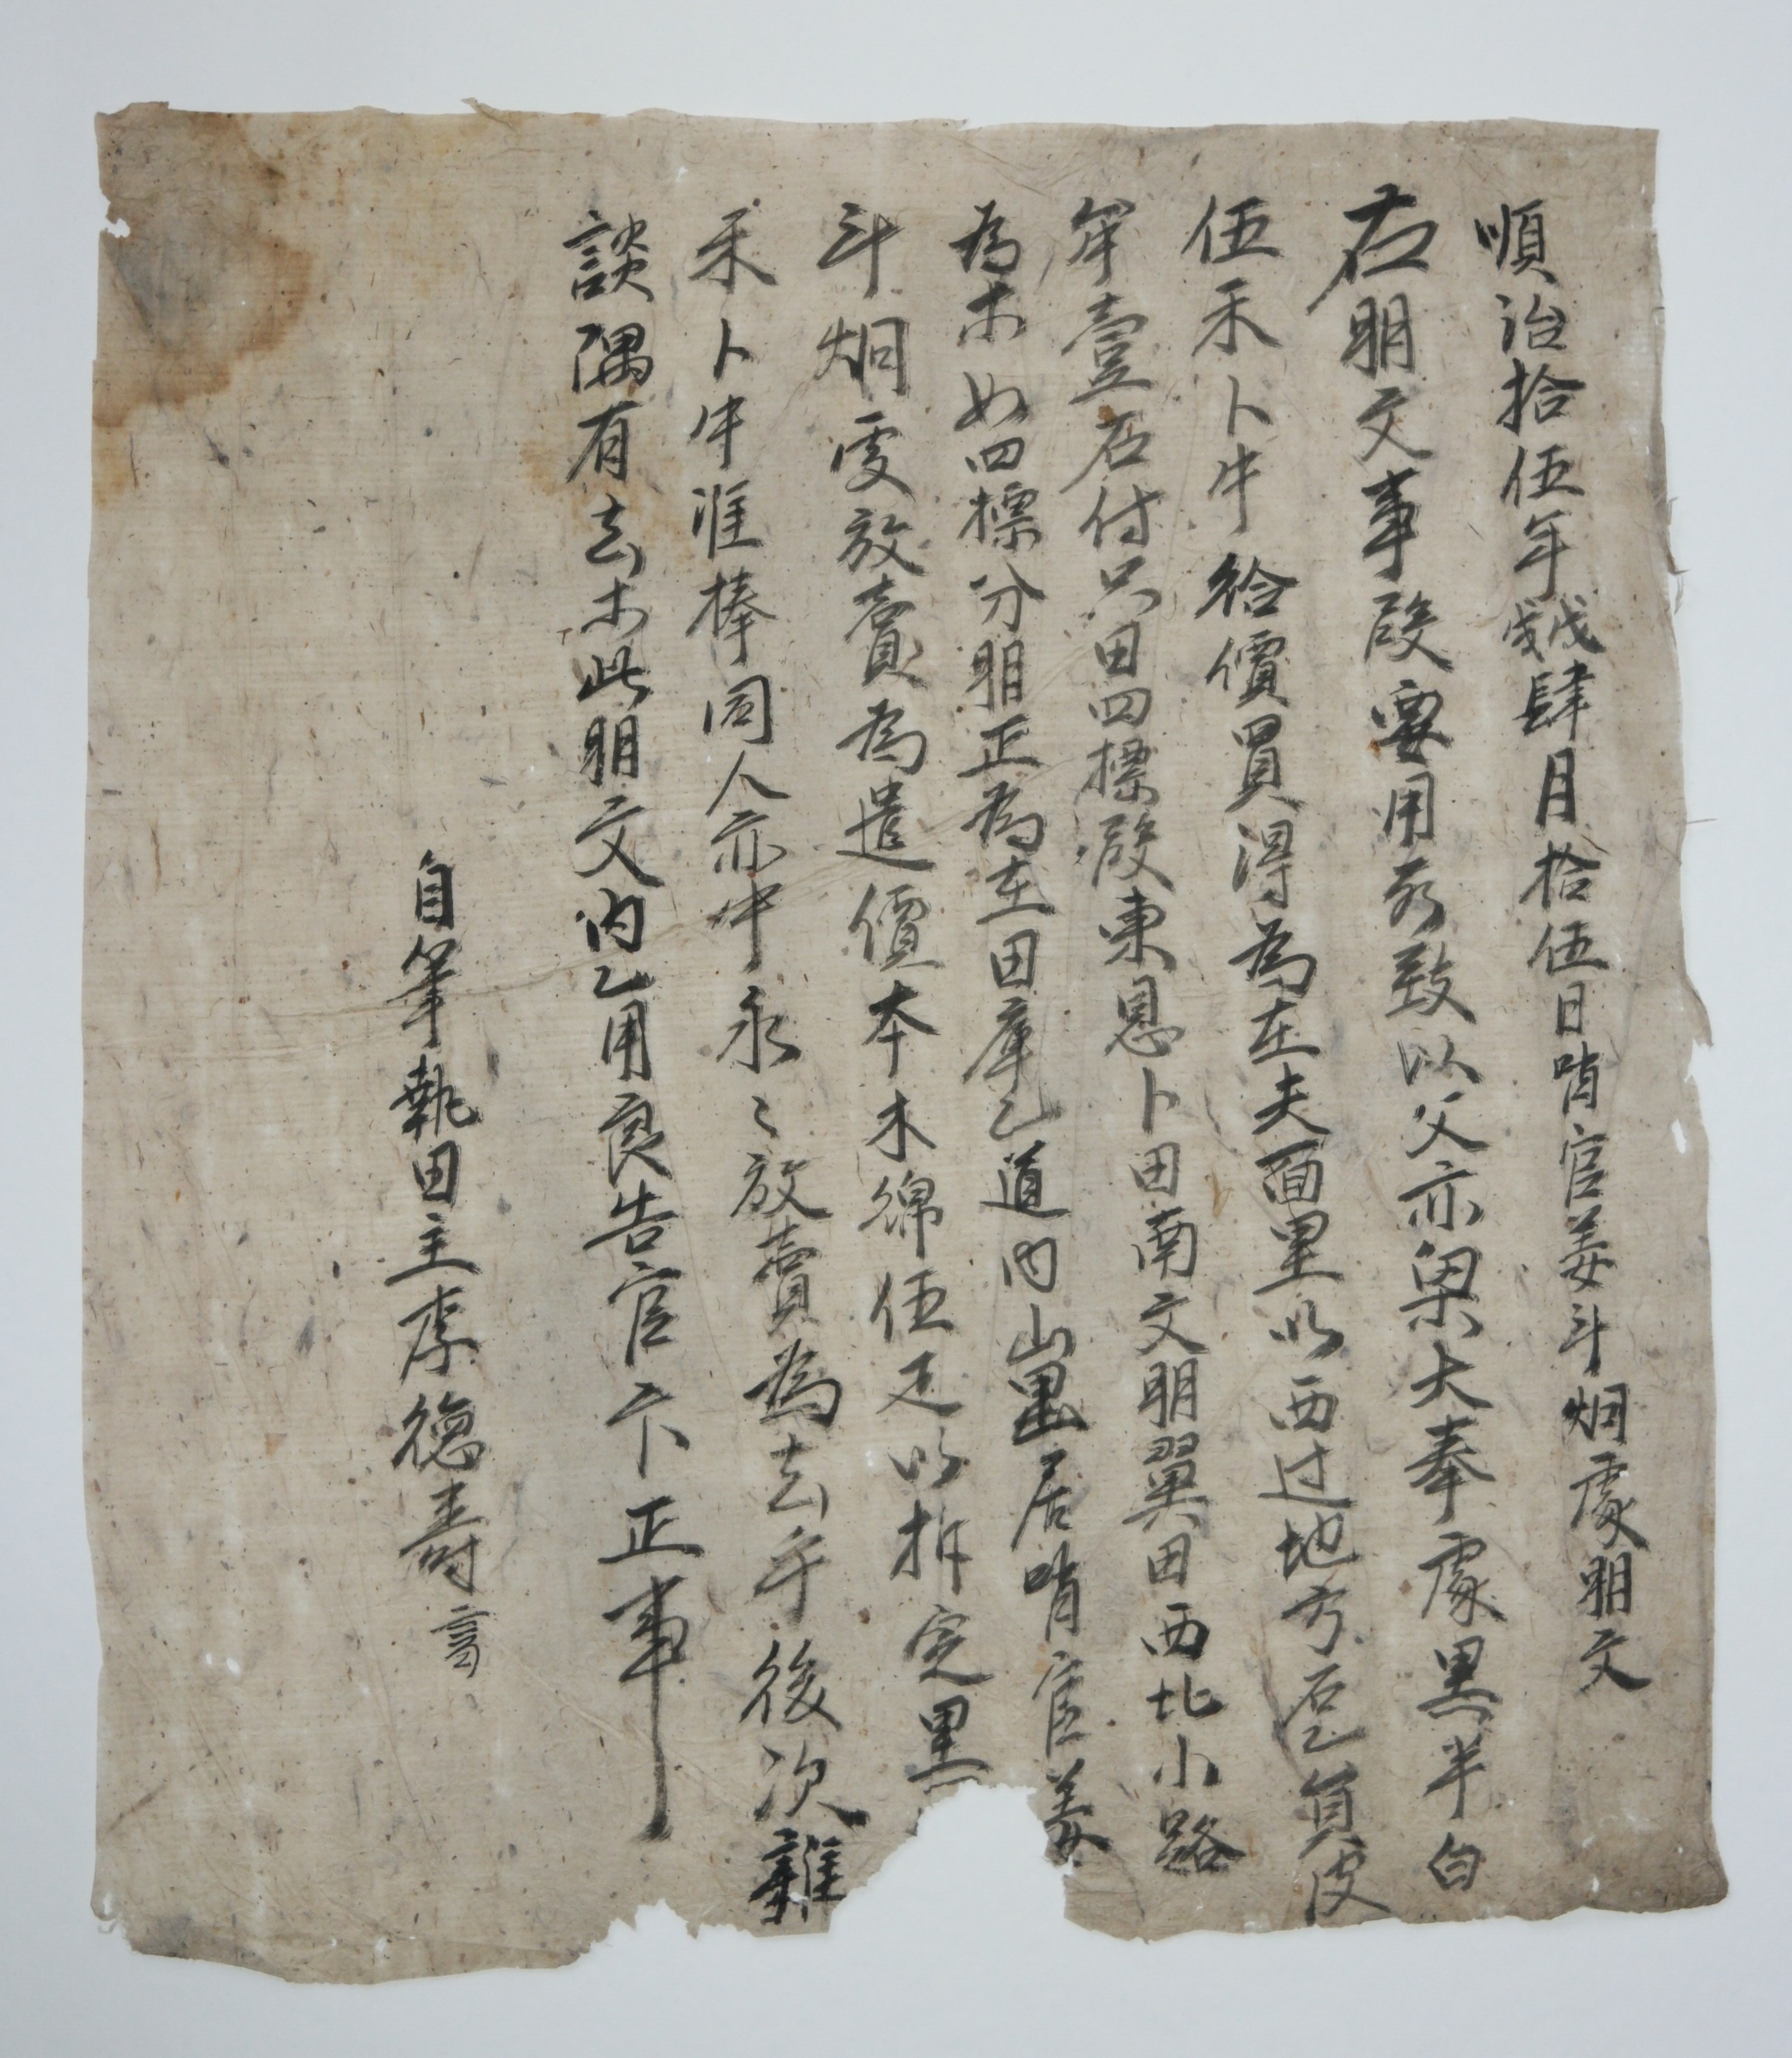 順治拾伍年戊戌肆月拾伍日哨官姜斗炯處明文
右明文事段要用所致以父亦梁大奉處黑半白
伍禾卜牛給價買得爲在夫面里以西过地方 負皮
牟壹石付只田四標段東恩卜田南文明翼田西北小路
爲木如四標分明正爲在田庫乙道內山 居哨官姜
斗炯處放賣爲遣價本木綿伍疋以折定黑
禾卜牛准捧同人亦中永〻放賣爲去乎後次雜
談隅有去木此明文內乙用良告官卞正事
自筆執田主李德壽